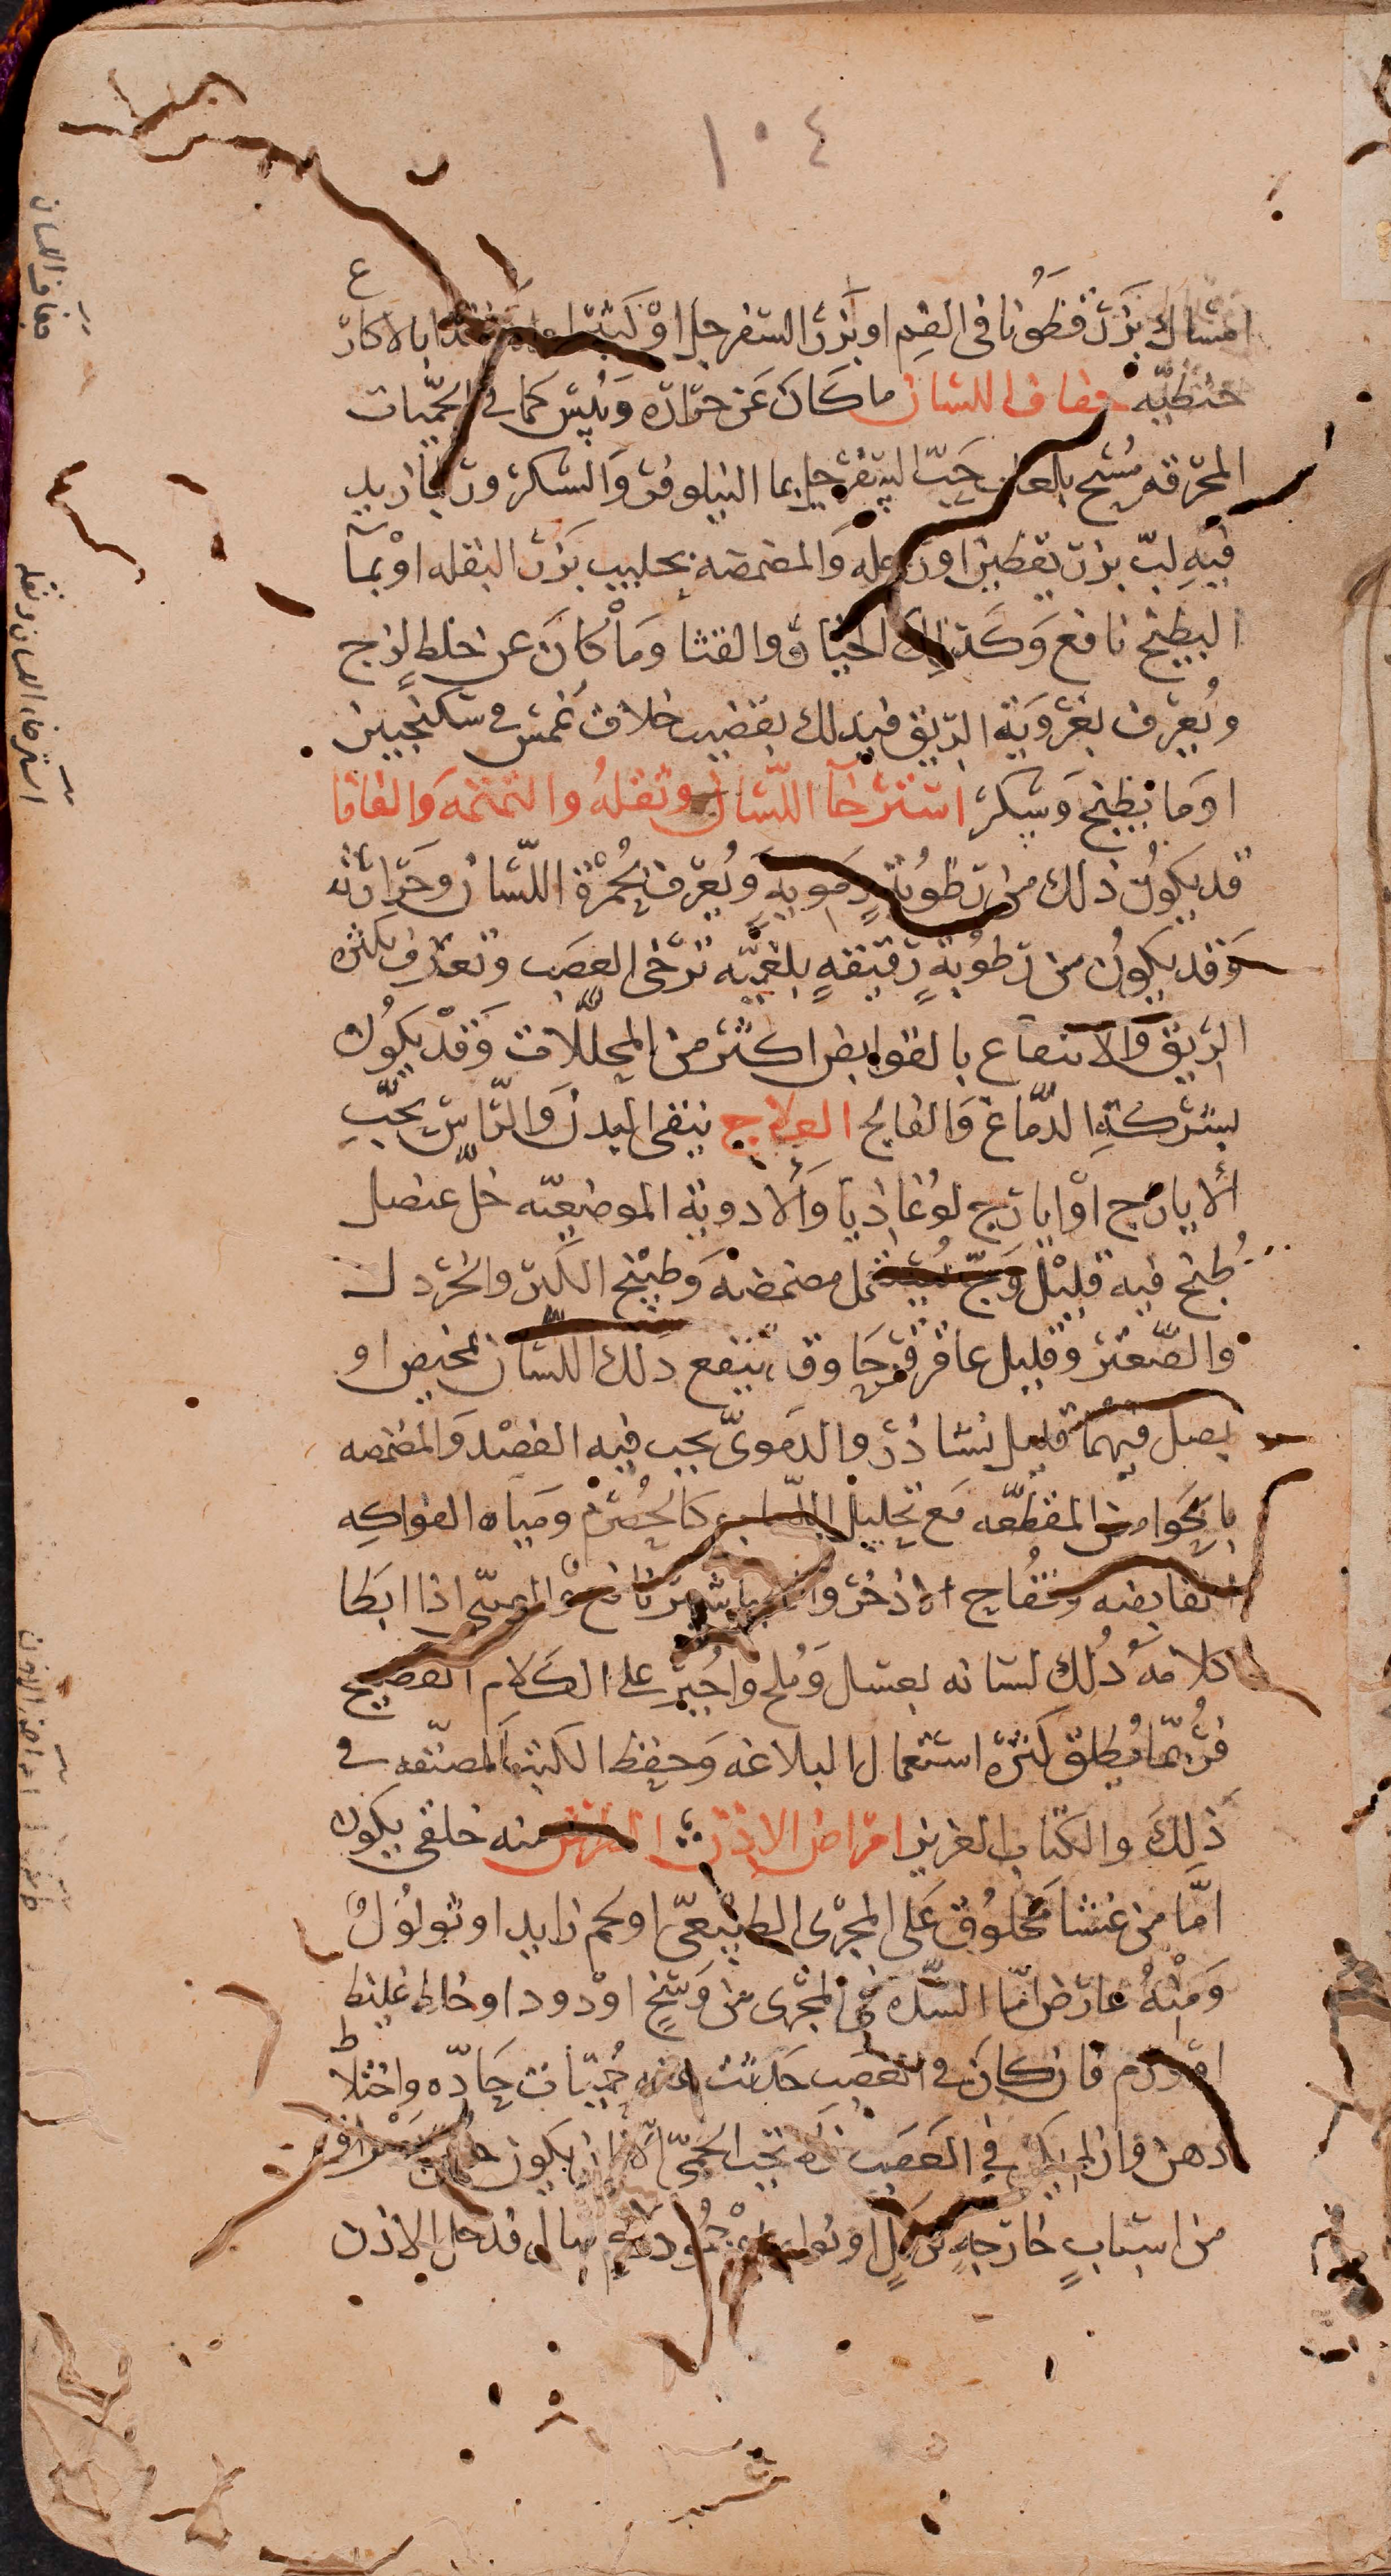 ١٠٤
امساك بزر قطونا فى الفم او بزر السفرجل او كثيرا بالاكارع
حنطيه جفاف اللسان ما كان عن حرارة ويبس كما فى الحميات
المحرقه مسح بلعاب حب السفرجل بما النيلوفر والسكر وربما زيد
فيه لب بزر يقطين او رجله والمضمضه بحليب بزر البقله او بما
البطيخ نافع وكذلك الخيار والقثا وما كان عن خلط لزج
ويعرف بغروية الريق فيدلك بقضيب خلاف غمس فى سكنجبين
او ما بطيخ وسكر استرخا اللسان وثقله والتمتمه والفافا
قد يكون ذلك من رطوبة دمويه ويعرف بحمرة اللسان وحرارته
وقد يكون من رطوبة رقيقه بلغميه ترخى العصب وتعرف بكثره
الريق والانتفاع بالقوابض اكثر من المحللات وقد يكون
بشركة الدماغ والفالج العلاج ينقى البدن والراس بحب
الايارج او ايارج لوغاديا والادوية الموضعيه خل عنصل
طبخ فيه قليل وج مضمضه وطبيخ الكبر والخردل
والصعتر وقليل عاقرقرحا وق ينفع دلك اللسان بمخيض او
بصل فيهما قليل نشادر والدموى يجب فيه الفصد والمضمضه
بالحوامض المقطعه مع تحليل كالحصرم ومياه الفواكه
القابضه وفقاح الاذخر نافع والصبى اذا ابطا
كلامه دلك لسانه بعسل وملح واجبر على الكلام الفصيح
فربما يطلق كثرة استعمال البلاغه وحفظ الكتب المصنفه فى
ذلك والكتاب العزيز امراض الاذن الطرش منه خلقى يكون
اما من غشا مخلوق على المجرى الطبيعى او لحم زايد او ثولول
ومنه عارض اما السده فى المجرى من وسخ او دود او خلط غليظ
او ورم فان كان فى العصب حدثت عنه حميات حاده واختلاط
ذهن وان لم يكن فى العصب لم تجب الحمى الا ان يكون
من اسباب خارجه رمل او نواه قد دخل الاذن
جفاف اللسان
استرخاء اللسان وثقله